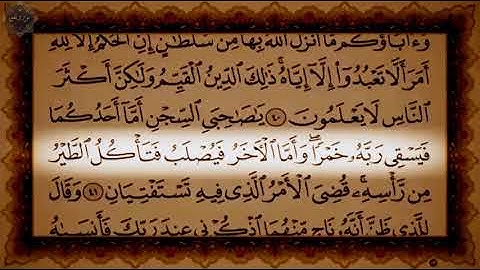 وَءَابَآؤُكُم مَّآ أَنزَلَ ٱللَّهُ بِهَا مِن سُلْطَٰنٍ إِنِ ٱلْحُكْمُ إِلَّا لِلَّهِ
أَمَرَ أَلَّا تَعْبُدُوٓا۟ إِلَّآ إِيَّاهُ ذَٰلِكَ ٱلدِّينُ ٱلْقَيِّمُ وَلَٰكِنَّ أَكْثَرَ
ٱلنَّاسِ لَا يَعْلَمُونَ ٤٠ يَٰصَٰحِبَىِ ٱلسِّجْنِ أَمَّآ أَحَدُكُمَا
فَيَسْقِى رَبَّهُۥ خَمْرًا وَأَمَّا ٱلْءَاخَرُ فَيُصْلَبُ فَتَأْكُلُ ٱلطَّيْرُ
مِن رَّأْسِهِۦ قُضِىَ ٱلْأَمْرُ ٱلَّذِى فِيهِ تَسْتَفْتِيَانِ ٤١ وَقَالَ
لِلَّذِى ظَنَّ أَنَّهُۥ نَاجٍ مِّنْهُمَا ٱذْكُرْنِى عِندَ رَبِّكَ فَأَنسَىٰهُ